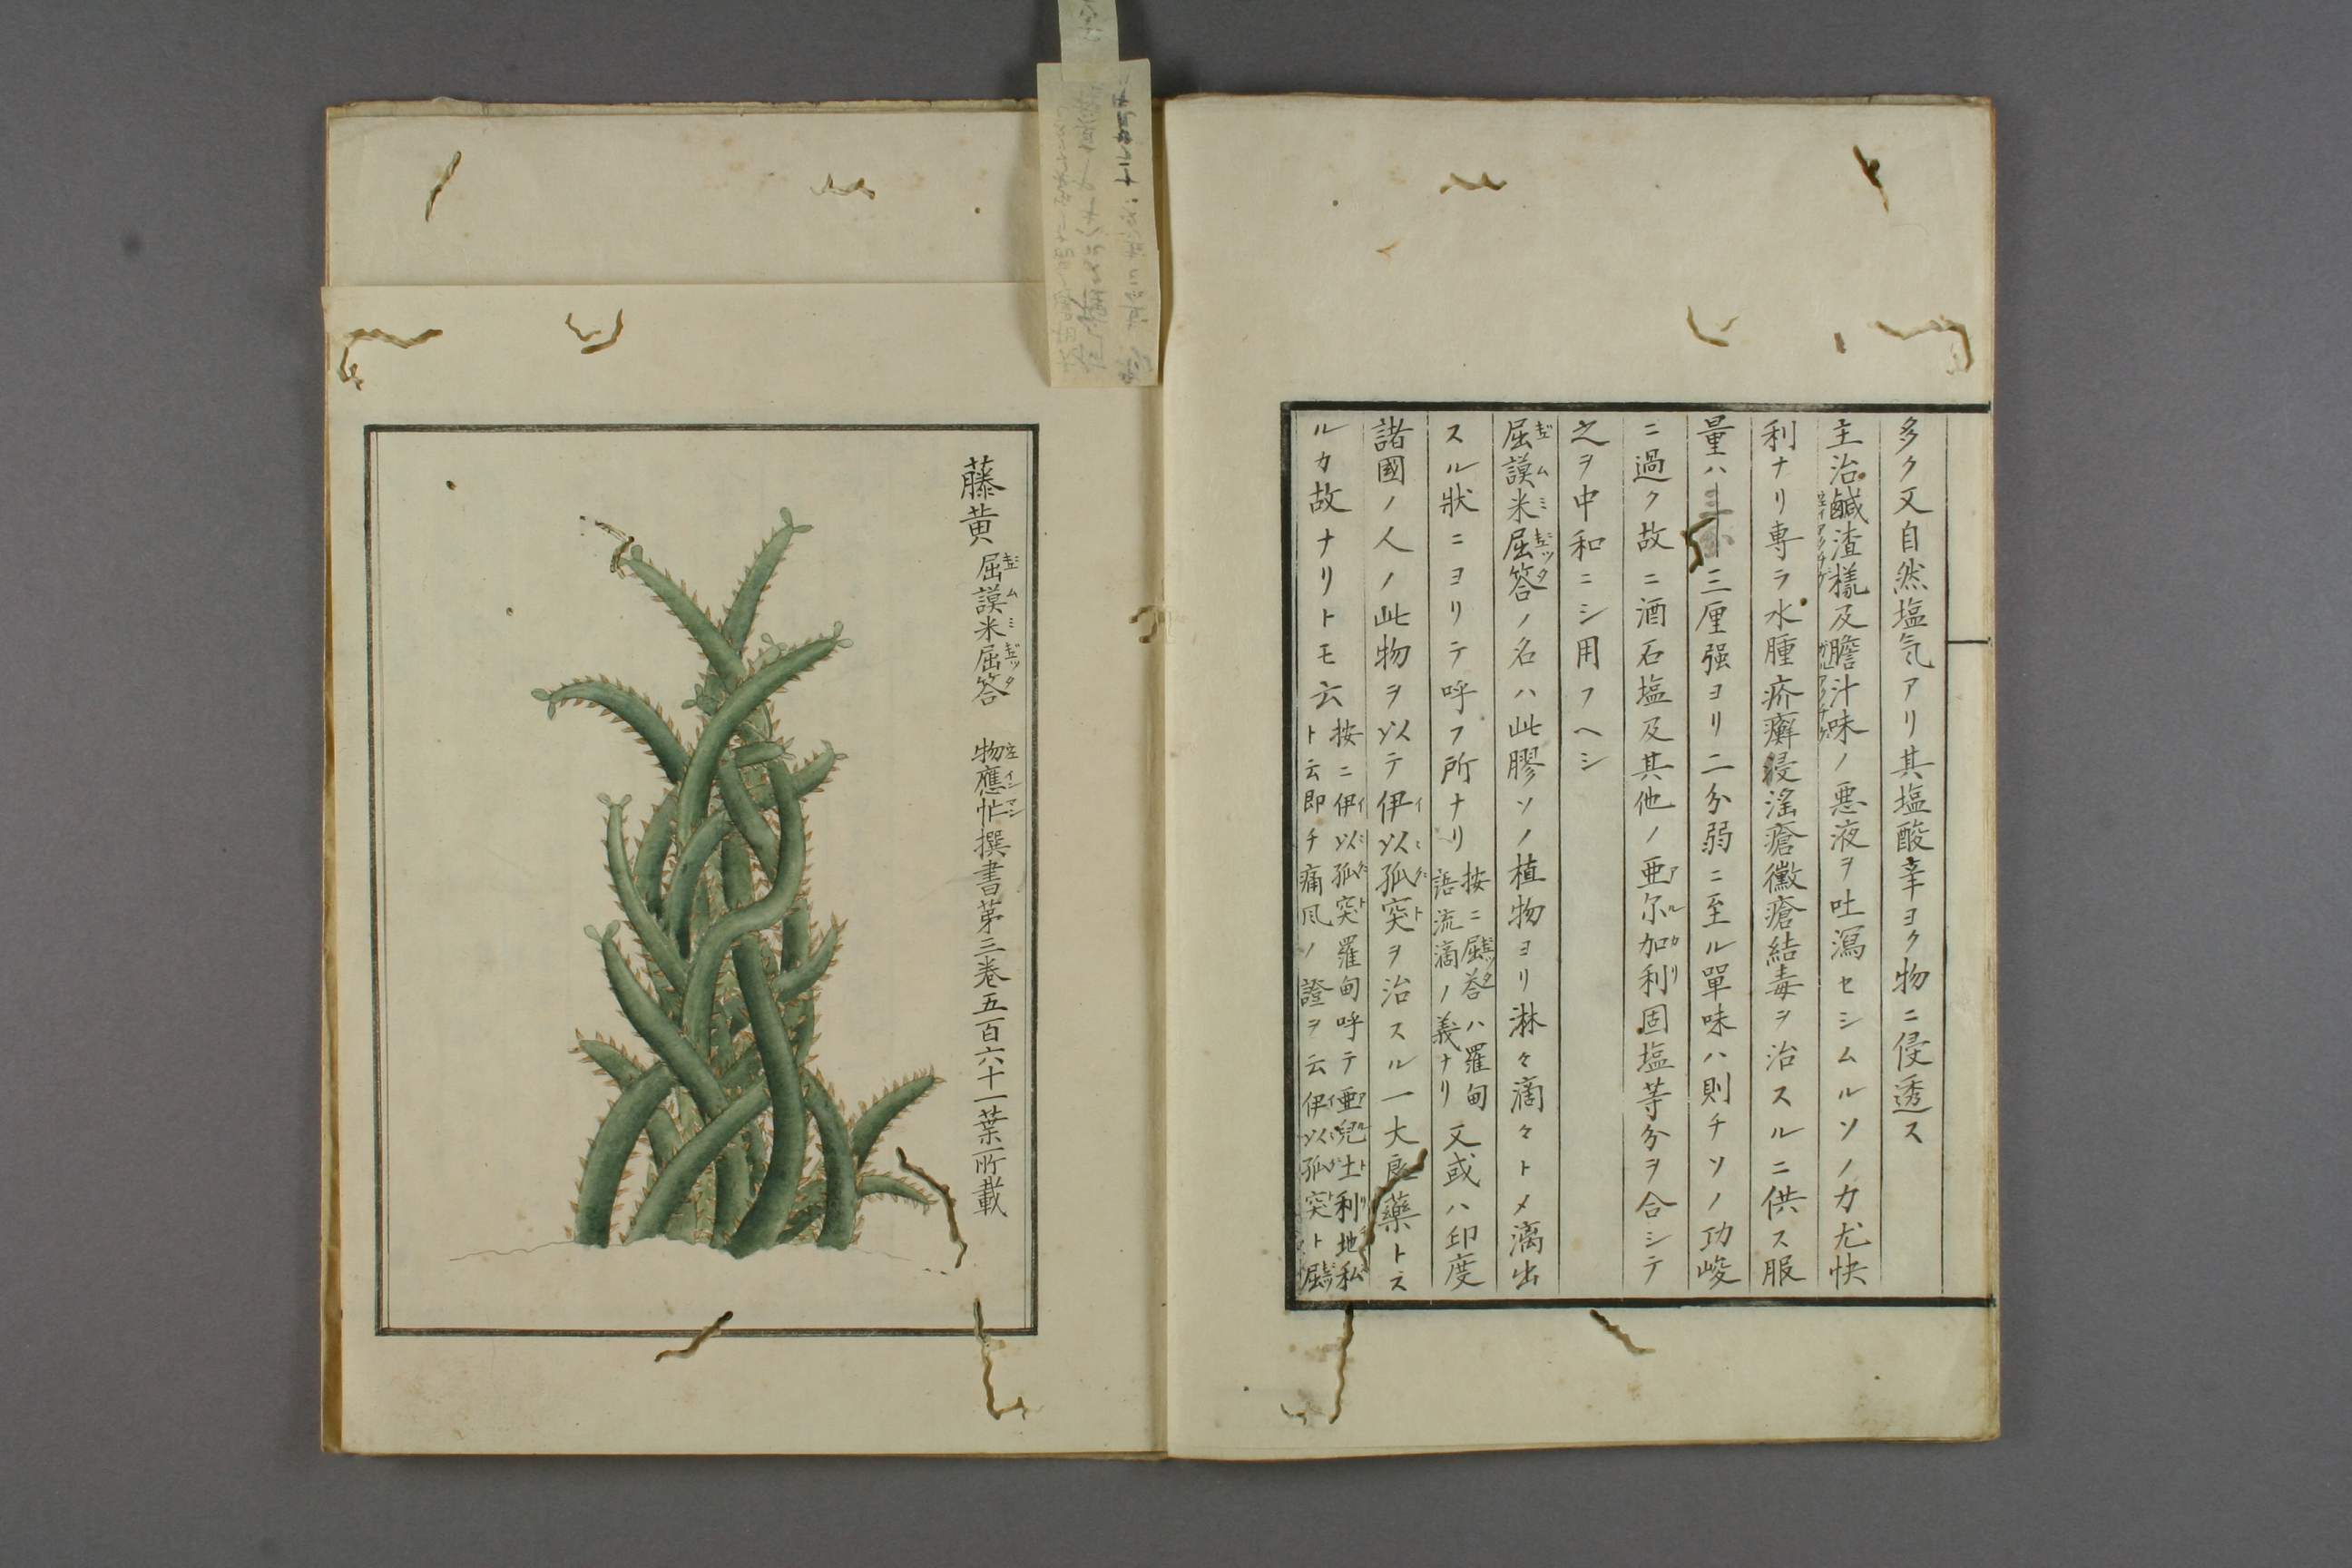 多ク又自然塩気アリ其塩酸辛ヨク物ニ侵透ス
主治鹹渣樣及膽汁味ノ悪液ヲ吐瀉セシムルソノ力尤快
利ナリ専ラ水腫疥癬侵淫瘡黴瘡結毒ヲ治スルニ供ス服
量ハ三厘强ヨリ二分弱ニ至ル單味ハ則チソノ功峻
ニ過ク故ニ酒石塩及其他ノ亜尓加利固塩等分ヲ合シテ
之ヲ中和ニシ用フヘシ
屈謨米屈答ノ名ハ此膠ソノ植物ヨリ淋々滴々トメ漓出
スル狀ニヨリテ呼フ所ナリ按ニ屈答ハ羅甸語流滴ノ義ナリ又或ハ印度
諸國ノ人ノ此物ヲ以テ伊以孤突ヲ治スル一大良藥トス
ルカ故ナリトモ云按ニ伊以孤突羅甸呼テ亜兒土利地私ト云即チ痛風ノ證ヲ云伊以孤突ト屈
藤黄 屈謨米屈答 物應帒撰書第三巻五百六十一葉所載